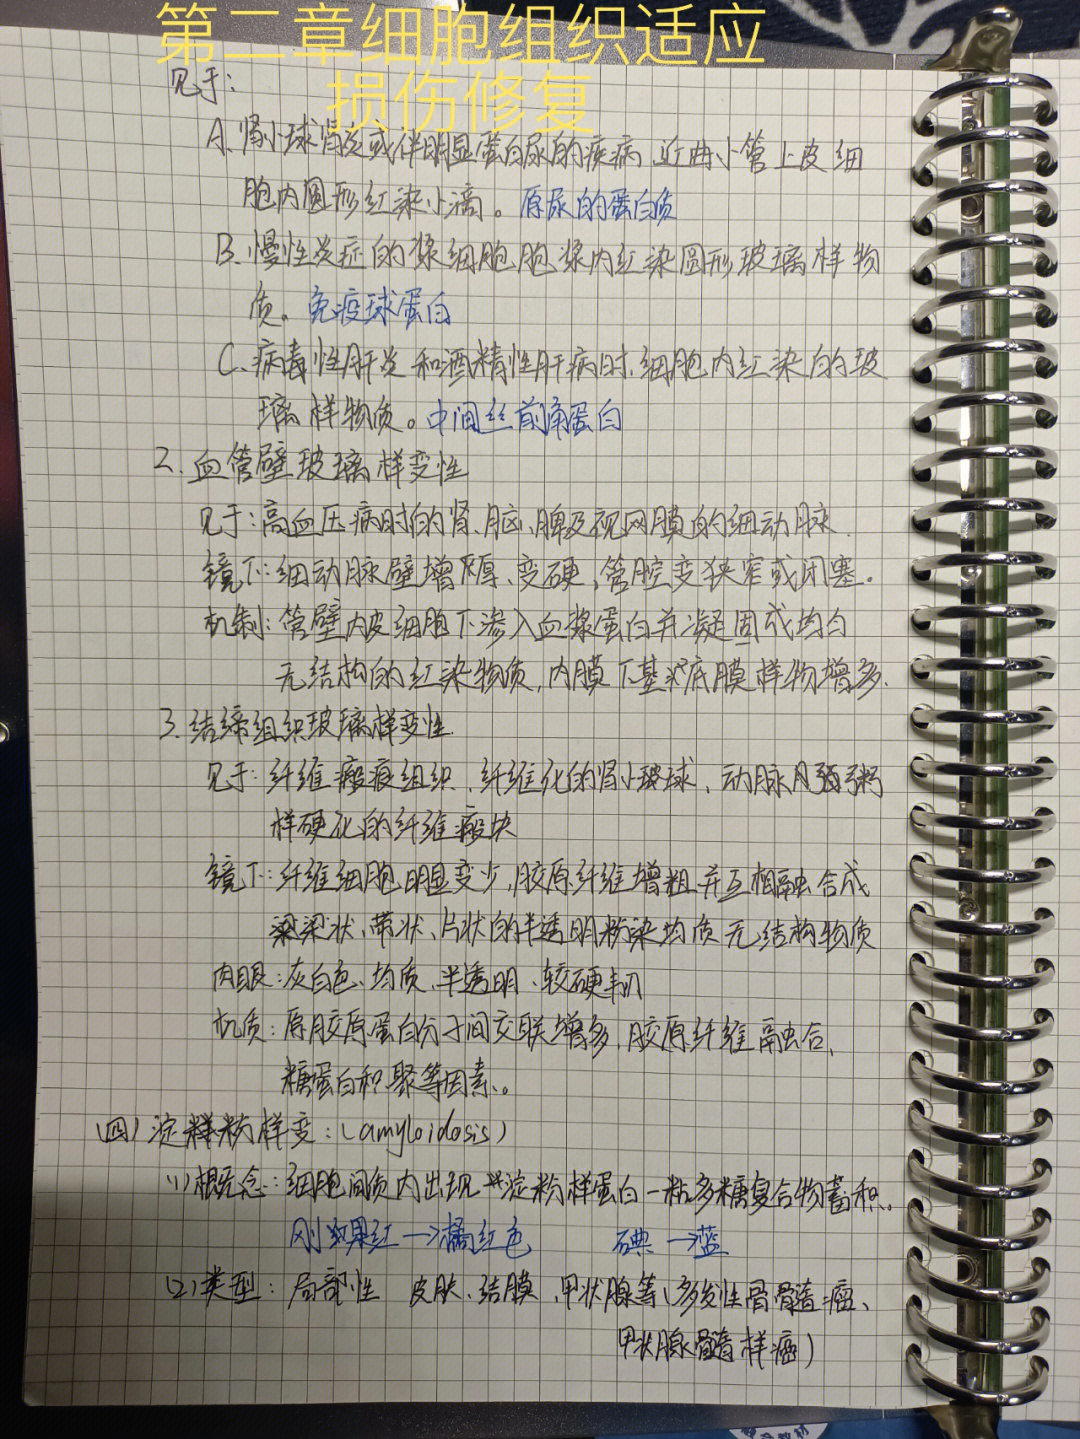 第二章细胞组织适应
损伤修复
见于：
A、肾小球肾炎或伴明显蛋白尿的疾病 近曲小管上皮细
胞内圆形红染小滴。原尿的蛋白质
B、慢性炎症的浆细胞胞浆内红染圆形玻璃样物
质。免疫球蛋白
C、病毒性肝炎和酒精性肝病时、细胞内红染的玻
璃样物质。中间丝前角蛋白
2、血管壁玻璃样变性
见于：高血压病时的肾、脑、脾及视网膜的细动脉.
镜下：细动脉壁增厚、变硬，管腔变狭窄或闭塞。
机制：管壁内皮细胞下渗入血浆蛋白并凝固成均匀
无结构的红染物质，内膜下基底膜样物增多.
3、结缔组织玻璃样变性.
见于：纤维瘢痕组织、纤维化的肾小球，动脉粥
样硬化的纤维瘢块
镜下：纤维细胞明显变少，胶原纤维增粗并互相融合成
梁状、带状、片状的半透明粉染均质无结构物质
肉眼：灰白色、均质、半透明、较硬韧
机质：原胶原蛋白分子间交联增多，胶原纤维融合、
糖蛋白积聚等因素。
(四)淀粉样变：(amyloidosis)
(1)概念：细胞间质内出现淀粉样蛋白-粘多糖复合物蓄积。
刚果红→橘红色 碘→蓝
(2)类型：局部性 皮肤、结膜、甲状腺等(多发性骨髓瘤、
甲状腺髓样癌)